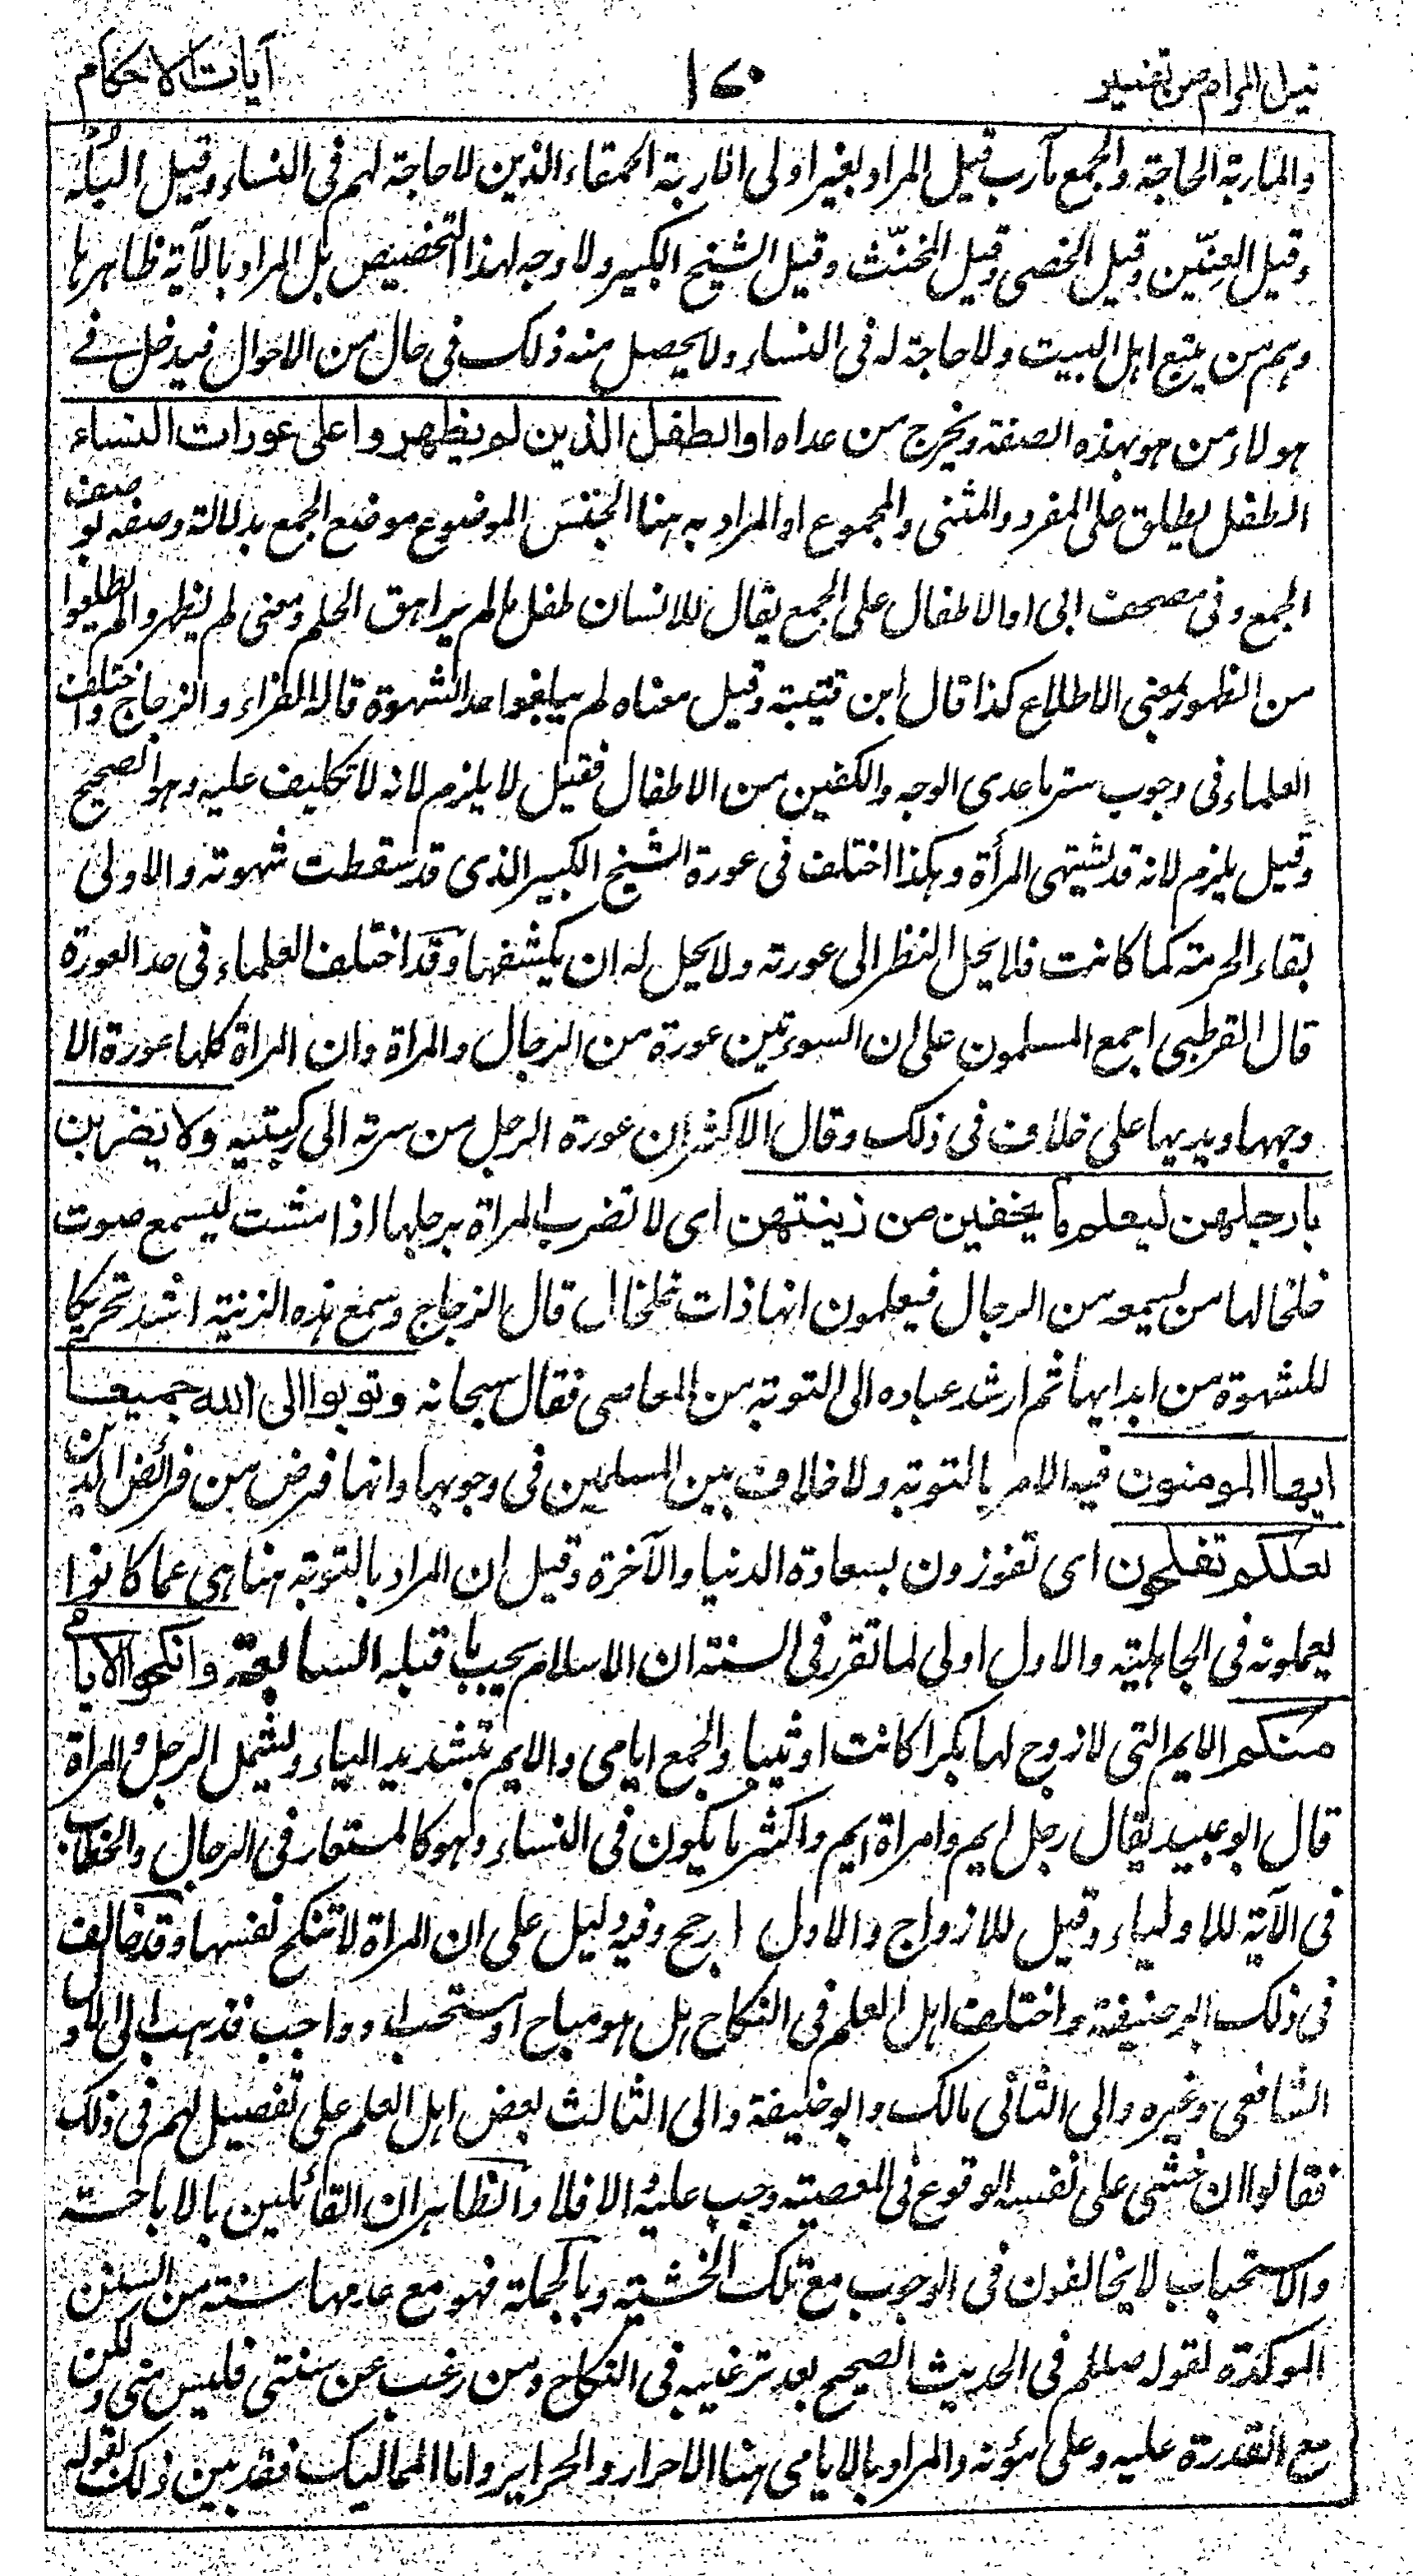 نيل المرام من تفسير
١٧٠
آيات الاحكام
والماربة الحاجة والجمع مآرب قيل المراد بغير اولى الاربة الحمقاء الذين لا حاجة لهم فى النساء وقيل البُلْه
وقيل العِنِّين وقيل الخصى وقيل المخنّث وقيل الشيخ الكبير ولا وجه لهذا التخصيص بل المراد بالآية ظاهرها
وهم من يتبع اهل البيت ولا حاجة له فى النساء ولا يحصل منه ذلك فى حال من الاحوال فيدخل فے
هولاء من هو بهذه الصفة ويخرج من عداه او الطفل الذين لم يظهروا على عورات النساء
الطفل يطلق على المفرد والمثنى والمجموع او المراد به هنا الجنس الموضوع موضع الجمع بدلالة وصفه بوصف
الجمع وفى مصحف ابى او الاطفال على الجمع يقال للانسان طفل ما لم يراهق الحلم ومعنى لم يظهروا لم يطلعوا
من الظهور بمعنى الاطلاع كذا قال ابن قتيبة وقيل معناه لم يبلغوا حد الشهوة قاله الفراء والزجاج واختلف
العلماء فى وجوب ستر ما عدى الوجه والكفين من الاطفال فقيل لا يلزم لانه لا تكليف عليه وهو الصحيح
وقيل يلزم لانه قد يشتهى المرأة وهكذا اختلف فى عورة الشيخ الكبير الذى قد سقطت شهوته والاولى
بقاء الحرمة كما كانت فلا يحل النظر الى عورته ولا يحل له ان يكشفها وقد اختلف العلماء فى حد العورة
قال القرطبى اجمع المسلمون على ان السوءتين عورة من الرجال والمراة وان المراة كلها عورة الا
وجهها ويديها على خلاف فى ذلك وقال الاكثر ان عورة الرجل من سرته الى ركبتيه ولا يضربن
بارجلهن ليعلم ما يخفين من زينتهن اى لا تضرب المراة برجلها اذا مشت ليسمع صوت
خلخالها من يسمعه من الرجال فيعلمون انها ذات خلخال قال الزجاج وسمع هذه الزينة اشد تحريكا
للشهوة من ابدايها ثم ارشد عباده الى التوبة من المعاصى فقال سبحانه وتوبوا الى الله جميعا
ايها المومنون فيه الامر بالتوبة ولا خلاف بين المسلمين فى وجوبها وانها فرض من فرائض الدين
لعلكم تفلحون اى تفوزون بسعادة الدنيا والآخرة وقيل ان المراد بالتوبة هنا هى عما كانوا
يعملونه فى الجاهلية والاول اولى لما تقرر فى السنة ان الاسلام يجب ما قبله السابعة وانكحوا الايامى
منكم الايم التى لا زوج لها بكرا كانت او ثيبا والجمع ايامى والايم بتشديد الياء ويشمل الرجل والمراة
قال ابو عبيد يقال رجل ايم وامراة ايم واكثر ما يكون فى النساء وهو كالمستعار فى الرجال والخطاب
فى الآية للاولياء وقيل للازواج والاول ارجح وفيه دليل على ان المراة لا تنكح نفسها وقد خالف
فى ذلك ابو حنيفة واختلف اهل العلم فى النكاح هل هو مباح او مستحب او واجب فذهب الى الاول
الشافعى وغيره والى الثانى مالك وابو حنيفة والى الثالث بعض اهل العلم على تفصيل لهم فى ذلك
فقالوا ان خشى على نفسه الوقوع فى المعصية وجب عليه والا فلا والظاهر ان القائلين بالاباحة
والاستحباب لا يخالفون فى الوجوب مع تلك الخشية وبالجملة فهو مع عدمها سنة من السنن
الموكدة لقوله صللم فى الحديث الصحيح بعد ترغيبه فى النكاح ومن رغب عن سنتى فليس منى ولكن
مع القدرة عليه وعلى مؤنه والمراد بالايامى هنا الاحرار والحراير واما المماليك فقد بين ذلك بقوله